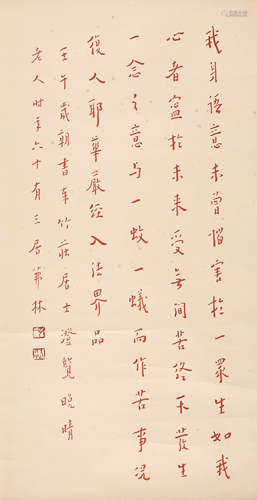 我身語意未曾惱害於一眾生如我
心者寧於未來受無間苦終不發生
一念之意与一蚊一蟻而作苦事况
復人耶華嚴經入法界品
壬午歲朝書奉竹莊居士澄覽晚晴
老人時年六十有三居茀林